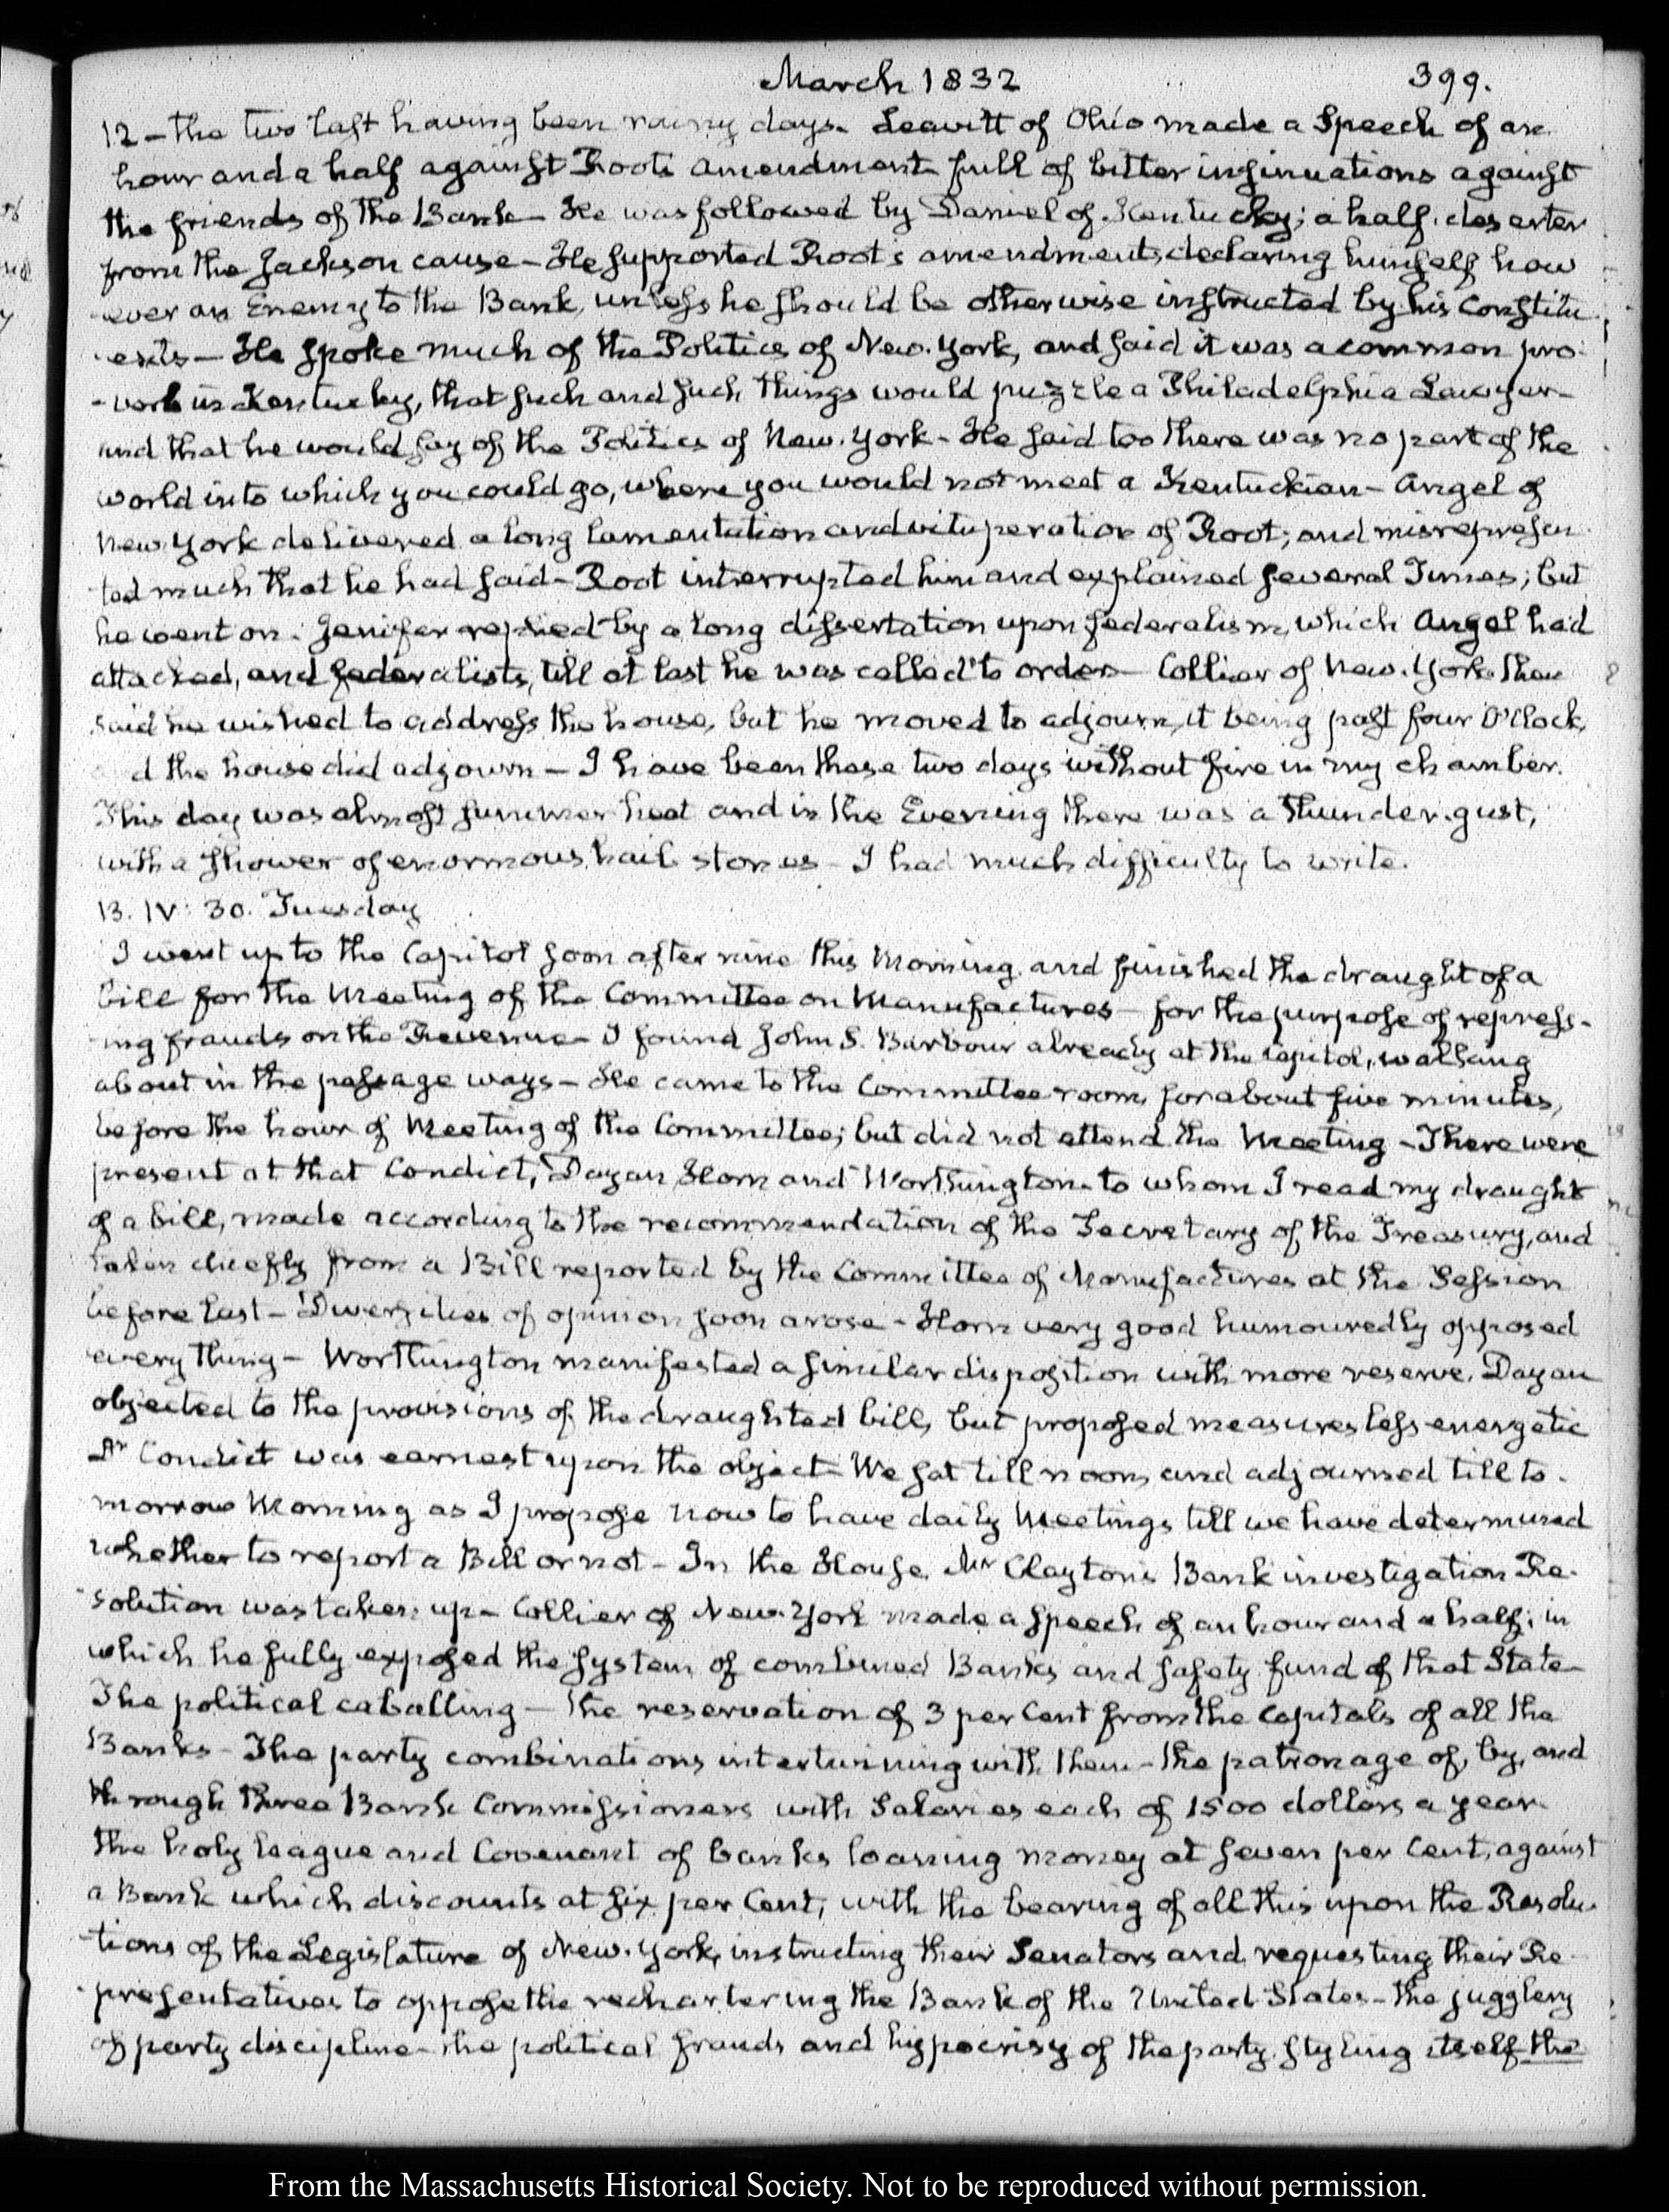 March 1832
399.
12 — the two last having been rainy days. Leavitt of Ohio made a Speech of an
hour and a half against Root's amendment full of bitter insinuations against
the friends of the Bank — He was followed by Daniel of Kentucky; a half. deserter
from the Jackson cause — He supported Root's amendment, declaring himself how
ever an Enemy to the Bank, unless he should be otherwise instructed by his Constitu
ents — He spoke much of the Politics of New. York, and said it was a common pro-
-verb in Kentucky, that such and such things would puzzle a Philadelphia Lawyer —
and that he would say of the Politics of New. York — He said too there was no part of the
world into which you could go, where you would not meet a Kentuckian — Angel of
New York delivered a long lamentation and vituperation of Root; and misrepresen
ted much that he had said — Root interrupted him and explained several Times; but
he went on. Jenifer replied by a long dissertation upon federalism, which Angel had
attacked, and federalists, till at last he was called to order — Collier of New. York then
said he wished to address the house, but he moved to adjourn, it being past four O'Clock,
and the house did adjourn — I have been these two days without fire in my chamber.
This day was almost summer heat and in the Evening there was a thunder. gust,
with a shower of enormous hail stones — I had much difficulty to write.
13. IV: 30. Tuesday
I went up to the Capitol soon after nine this Morning, and finished the draught of a
bill for the Meeting of the Committee on Manufactures — for the purpose of repress-
ing frauds on the Revenue — I found John S. Barbour already at the Capitol, walking
about in the passage ways — He came to the Committee room, for about five minutes,
before the hour of Meeting of the Committee; but did not attend the Meeting — There were
present at that Condict, Dayan, Horn and Worthington — to whom I read my draught
of a bill, made according to the recommendation of the Secretary of the Treasury, and
taken chiefly from a Bill reported by the Committee of Manufactures at the Session
before last — Diversities of opinion soon arose — Horn very good humouredly opposed
every thing — Worthington manifested a similar disposition with more reserve. Dayan
objected to the provisions of the draughted bill, but proposed measures less energetic
Dr Condict was earnest upon the object — We sat till noon, and adjourned till to-
morrow Morning as I propose now to have daily Meetings till we have determined
whether to report a Bill or not — In the House. Mr Clayton's Bank investigation Re-
solution was taken up — Collier of New. York made a speech of an hour and a half; in
which he fully exposed the system of combined Banks and safety fund of that State —
The political caballing — the reservation of 3 per Cent from the Capitals of all the
Banks — The party combinations intertwining with them — the patronage of, by, and
through three Bank Commissioners with Salaries each of 1500 dollars a year
the holy league and Covenant of banks loaning money at seven per Cent, against
a Bank which discounts at six per Cent, with the bearing of all this upon the Resolu-
tions of the Legislature of New. York, instructing their Senators and requesting their Re-
presentatives to oppose the rechartering the Bank of the United States — the jugglery
of party discipline — the political frauds and hypocrisy of the party styling itself the
From the Massachusetts Historical Society. Not to be reproduced without permission.